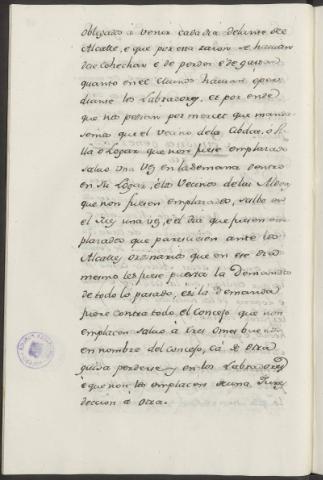 obligados a venir cada dia delante del
Alcalle, e que por esta razon se havian
de cohechar e de perder e de
quanto en el havian
diante los Labradores, et por ende
que nos pedian por merced que manda
semos que el vecino dela Cibdat, o Vi
lla o Logar que non fuese emplazado
salvo una vez en la semana dentro
en su Logar, e los vecinos de las Aldeas
que non fuesen emplazados, salvo en
el mes una vez, e el dia que fuesen em
plazados que paresciesen ante los
Alcalles ordinarios que en ese dia
mesmo les fuese puesta la Demanda
de todo lo pasado, e si la demanda
fuere contra todo el Concejo que non
emplacen salvo a tres Omes buenos
en nombre del Concejo, ca de otra
guisa perderse y en los Labradores
e que non los emplacen de una Juris
deccion á otra.